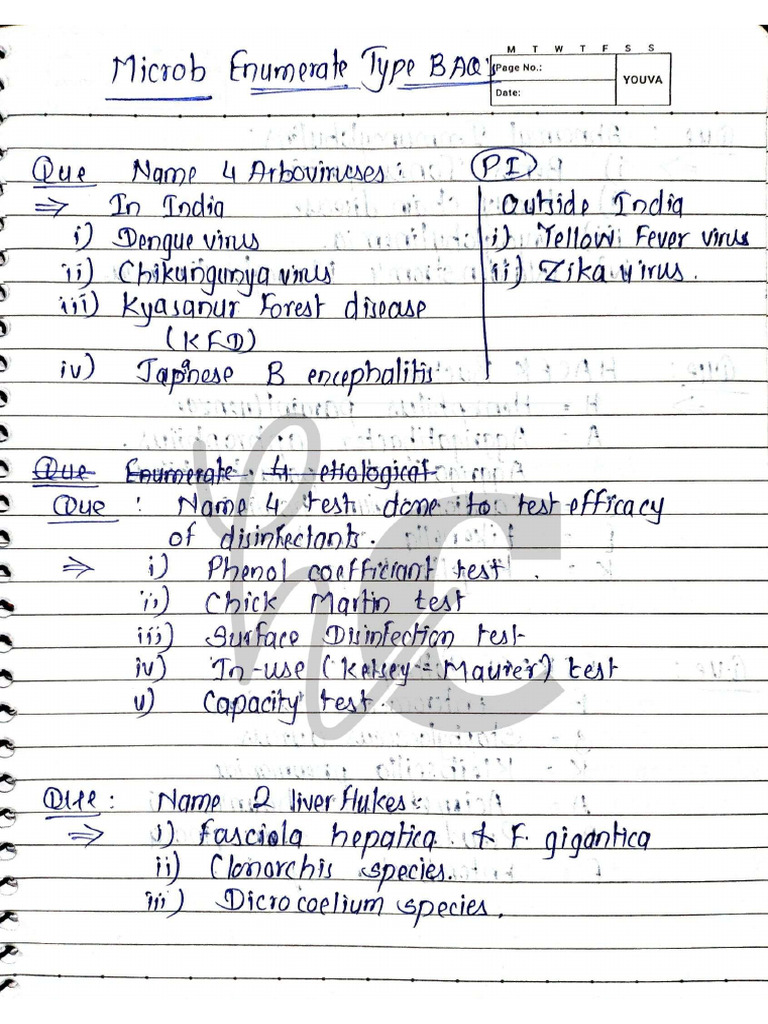 Microb Enumerate Type BAQ's
M T W T F S S
Page No.:
Date:
YOUVA
Que Name 4 Arboviruses: (PI)
⇒ In India
i) Dengue virus
ii) Chikungunya virus
iii) Kyasanur Forest disease
(KFD)
iv) Japnese B encephalitis
Outside India
i) Yellow Fever virus
ii) Zika virus.
Que Enumerate 4 etiological
Que : Name 4 test done to test efficacy
of disinfectants.
⇒ i) Phenol coefficiant test.
ii) Chick Martin test
iii) Surface Disinfection test
iv) In-use (Kelsey - Maurer) test
v) Capacity test.
Que: Name 2 liver flukes:
⇒ i) Fasciola hepatica & F. gigantica
ii) Clonorchis species.
iii) Dicrocoelium species.
hc